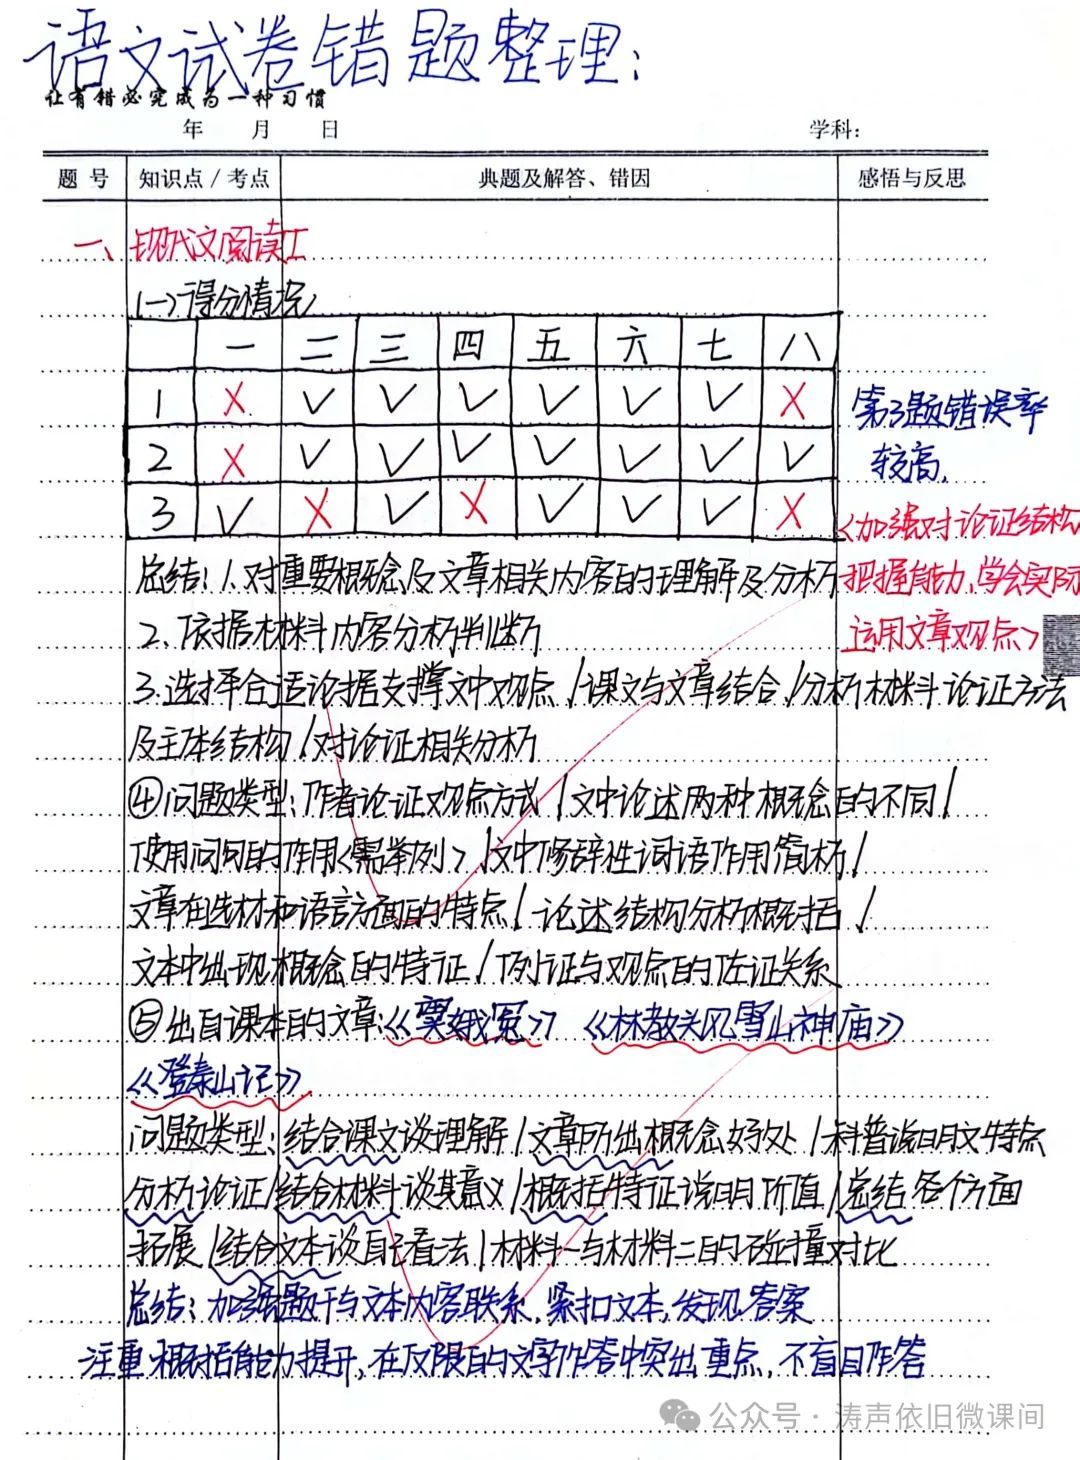 语文试卷错题整理:
让有错必究成为一种习惯
年 月 日 学科:
题号 知识点/考点 典题及解答、错因 感悟与反思
一、现代文阅读I
(一)得分情况
一 二 三 四 五 六 七 八
1 × ✓ ✓ ✓ ✓ ✓ ✓ ×
2 × ✓ ✓ ✓ ✓ ✓ ✓ ✓
3 ✓ × ✓ × ✓ ✓ ✓ ×
第3题错误率
较高.
<加强对论证结构
把握能力,学会实际
运用文章观点>
总结:1.对重要概念及文章相关内容的理解及分析
2.依据材料内容分析判断
3.选择合适论据支撑文中观点/课文与文章结合/分析材料论证方法
及主体结构/对论证相关分析
④问题类型:作者论证观点方式/文中论述两种概念的不同/
使用问句的作用<需举例>/文中修辞性词语作用简析/
文章在选材和语言方面的特点/论述结构分析概括/
文本中出现概念的特征/例证与观点的佐证关系
⑤出自课本的文章:《窦娥冤》《林教头风雪山神庙》
《登泰山记》
问题类型:结合课文谈理解/文章所出概念好处/科普说明文特点
分析论证/结合材料谈其意义/概括特征说明价值/总结各个方面
拓展/结合文本谈自己看法/材料一与材料二的碰撞对比
总结:加强题干与文本内容联系,紧扣文本,发现答案
注重概括能力提升,在有限的文字作答中突出重点,不盲目作答
公众号·涛声依旧微课间